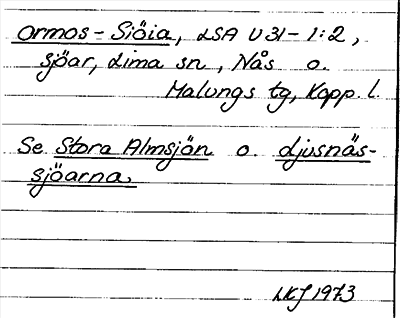 Ormos-Siöia, LSA U31-1:2,
sjöar, Lima sn, Nås o.
Malungs tg, Kopp. l.
Se Stora Almsjön o. Ljusnäs-
sjöarna.
LKJ 1973